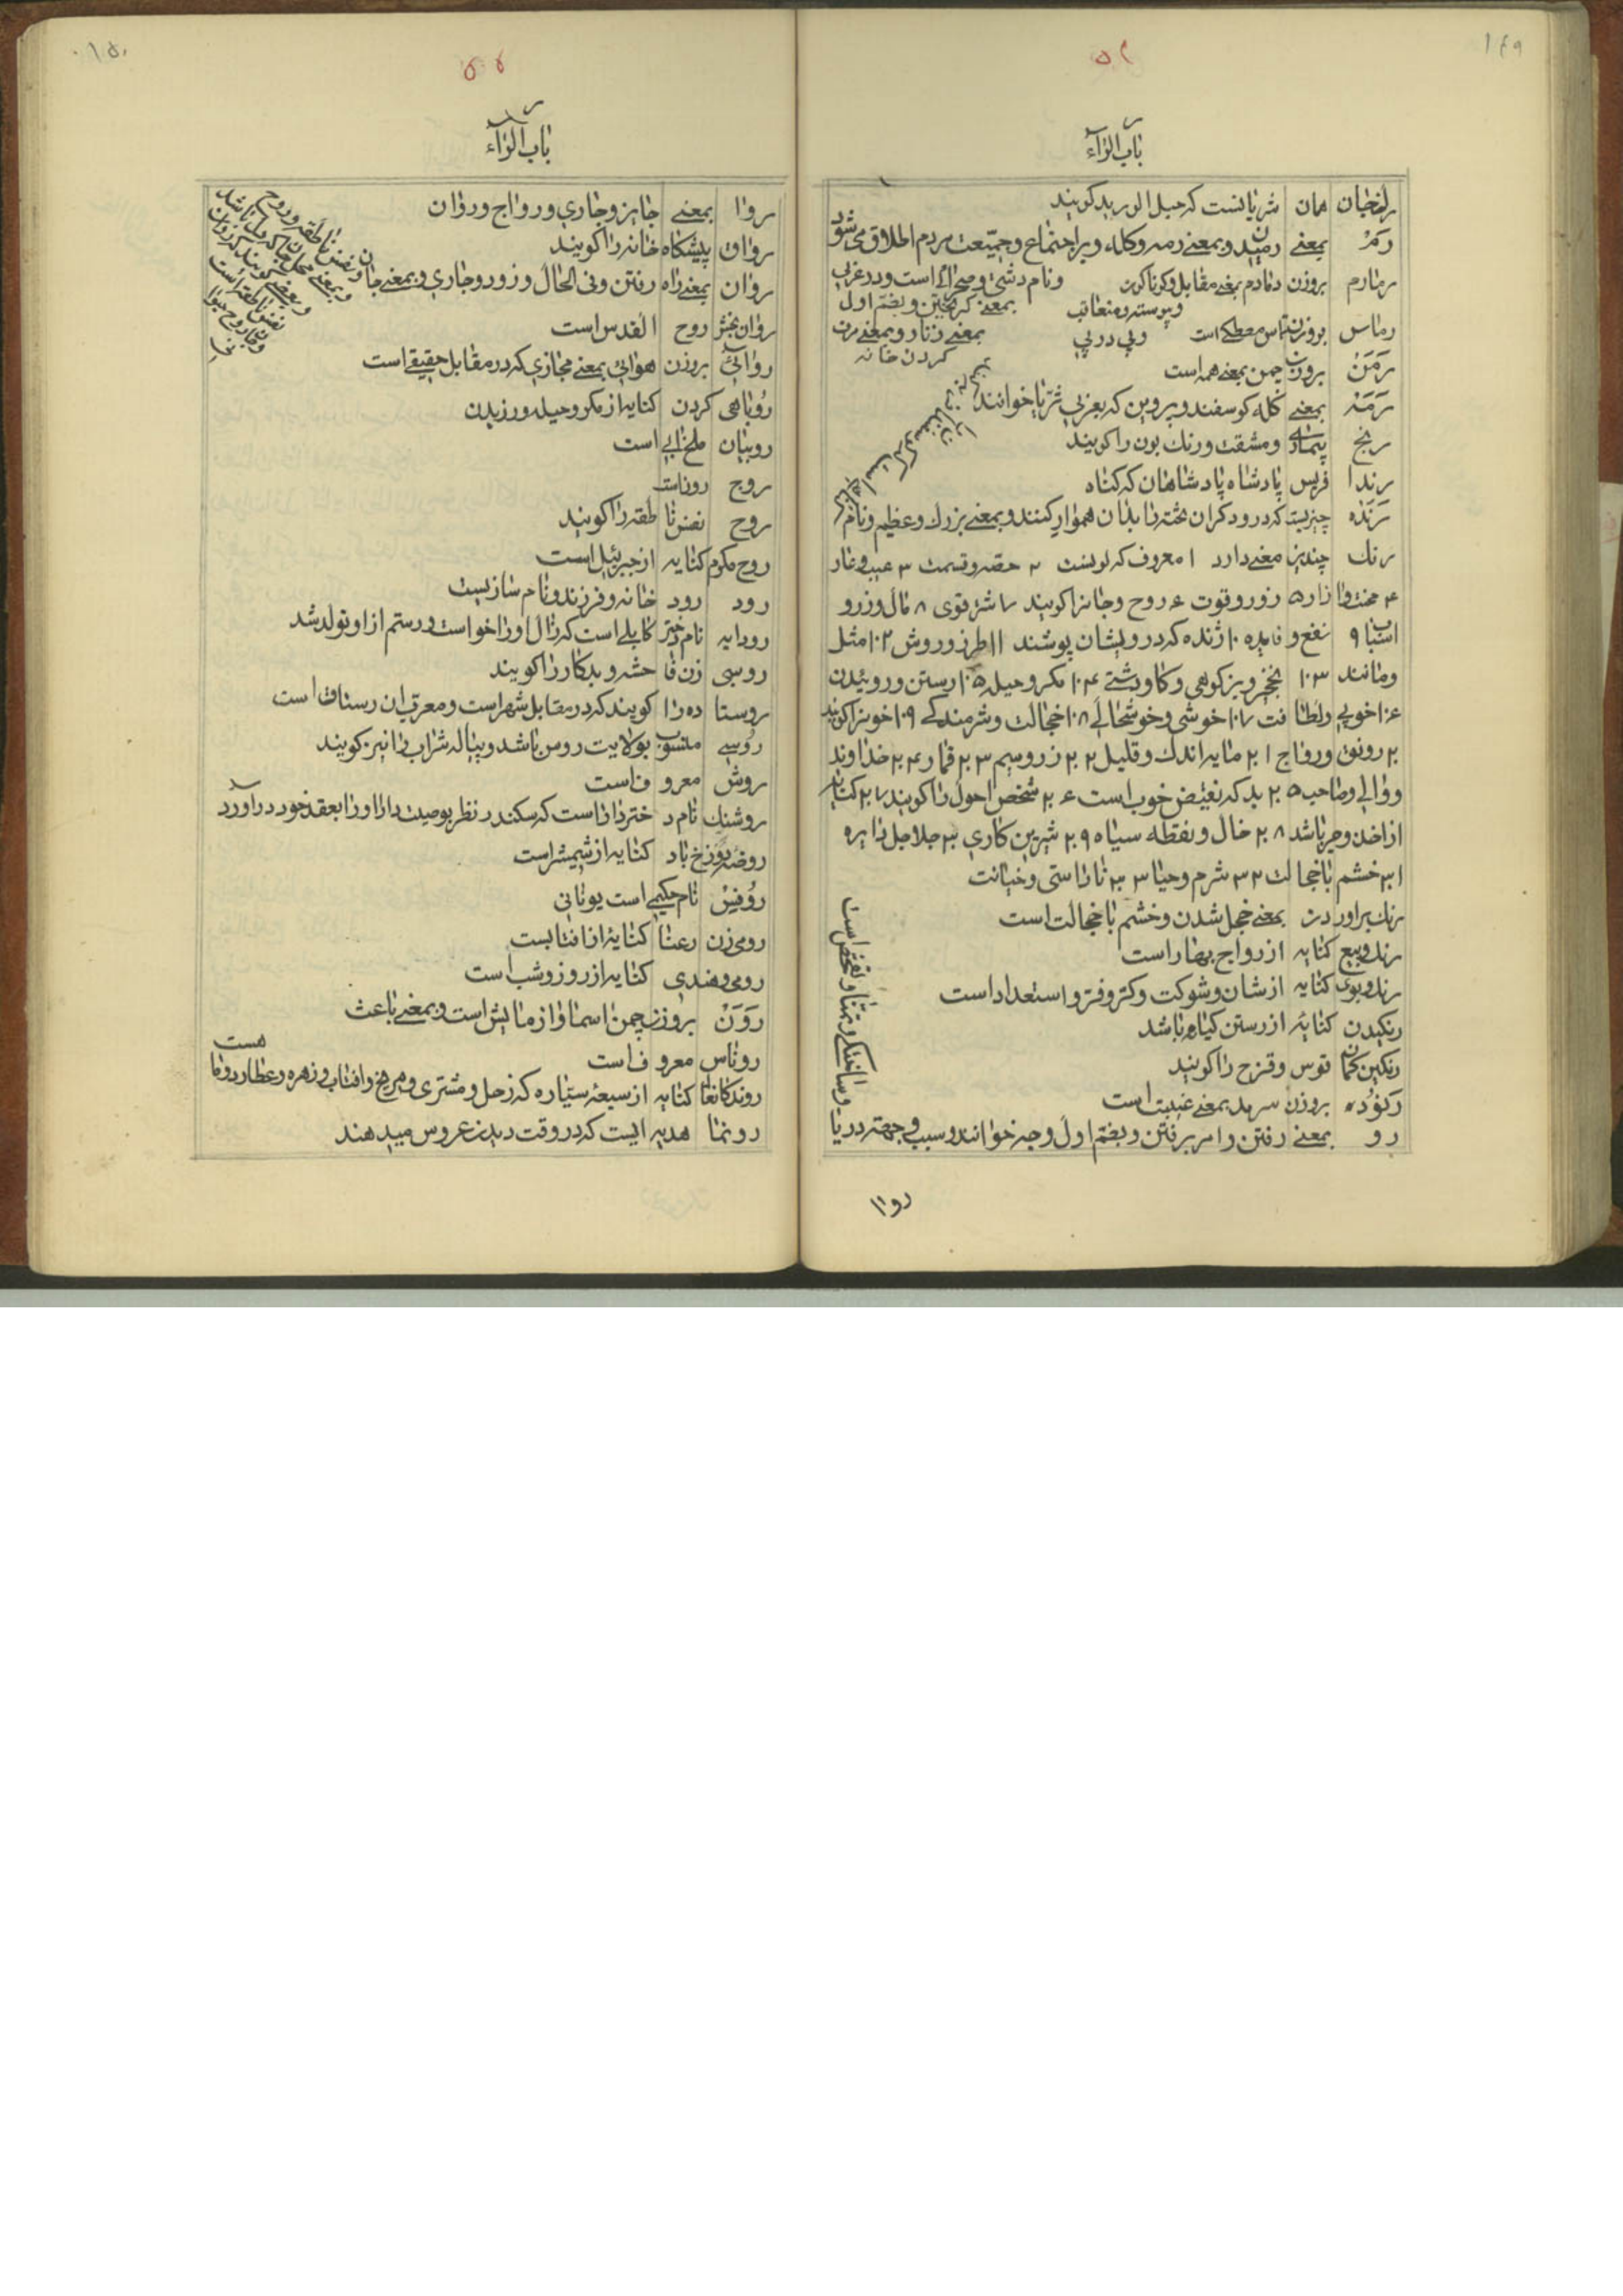 ۱۴۹
باب الرّاء
همان شریانست که حبل الورید کویند
رَمْ بمعنی رمیدن و بمعنی رمه و کله و بر اجتماع و جمیّعت مردم اطلاق می شود
رمارم بروزن دمادم بمعنی مقابل و کوناکون ونام دشتی و صحرائی است و در عربی
و پیوسته و متعاقب بمعنی کریختن و بضمّ اول
رماس بروزن الماس مصطکی است و پی در پی بمعنی زنار و بمعنی مرمت
کردن خانه
رَمَنْ بروزن چمن بمعنی همه است
رَمَهْ بمعنی کله کوسفند و پروین که بعربی ثریّا خوانند
رنج بیماری و مشقت و رنك بون را کویند
رندا فریس پادشاه پادشاهان که کناه
رَنْدَه چیزیست که درودکران تخته را بدان هموار کنند و بمعنی بزرك و عظیم و نام
رنك چندین معنی دارد ۱ معروف که لونست ۲ حصه و قسمت ۳ عیب و عار
۴ محنت و ازار ۵ زور و قوت ۶ روح و جانرا کویند ۷ شتر قوی ۸ مال و زر و
اسباب ۹ نفع و فایده ۱۰ ژنده که درویشان پوشند ۱۱ طرز و روش ۱۲ مثل
ومانند ۱۳ نخجیر و بز کوهی و کاو دشتی ۱۴ مکر و حیله ۱۵ رستن و روئیدن
۱۶ خوبی و لطافت ۱۷ خوشی و خوشحالی ۱۸ خجالت و شرمندکی ۱۹ خونرا کویند
۲۰ رونق و رواج ۲۱ مایه اندك و قلیل ۲۲ زر و سیم ۲۳ قمار ۲۴ خداوند
و والی و صاحب ۲۵ بد که نقیض خوب است ۲۶ شخص احول را کویند ۲۷ کنایه
از اخذ و جر باشد ۲۸ خال و نقطه سیاه ۲۹ شیرین کاری ۳۰ جلاجل دایره
۳۱ خشم با خجالت ۳۲ شرم و حیا ۳۳ ناراستی و خیانت
رنك براوردن بمعنی خجل شدن و خشم با خجالت است
کنایه از رواج بهار است
رنك و بوی کنایه از شان و شوکت و کر و فر و استعداد است
رنکیدن کنایه از رستن کیاه باشد
رنکین کمان قوس و قزح را کویند
رَنُوْدَه بروزن سرمد بمعنی غیبت است
رو بمعنی رفتن و امر برفتن و بضمّ اول وجه خوانند و سبب و جهة و ریا
و ساختکی و تمنا و تفحص است
روا
۱۵۰
باب الرّاء
روا بمعنی جایز و جاری و رواج و روان
رواق پیشکاه خانه را کویند
روان بمعنی راه رفتن و فی الحال و زود و جاری و بمعنی جان
و نفس ناطقه و روح
و بمعنی محل جان که دل باشد
و بعضی کویند که روان
نفس ناطقه است
و جان روح حیوا
نی
روان بخش روح القدس است
روائی بروزن هوائی بمعنی مجازی که در مقابل حقیقی است
روباهی کردن کنایه از مکر و حیله ورزیدن
روبیان ملخ ابی است
روج روز است
روح نفس ناطقه را کویند
روح مکرم کنایه از جبرئیل است
رود رود خانه و فرزند و نام سازیست
رودابه نام دختر کابلی است که زال او را خواست و رستم از او تولد شد
روسبی زن فاحشه و بدکار را کویند
روستا ده را کویند که در مقابل شهر است و معرب ان رستاق است
روسی منسوب بولایت روس باشد و پیاله شراب را نیز کویند
روش معروف است
روشنك نام دختر دارا است که سکندر نظر بوصیت دارا او را بعقد خود دراورد
روضه دوزخ باد کنایه از شمشیر است
رُوْفِیْسْ نام حکیمی است یونانی
رومی زن رعنا کنایه از افتابست
رومی و هندی کنایه از روز و شب است
رَوَنْ بروزن چمن اسما و ازمایش است و بمعنی باعث
هست
روناس معروف است
روندکان کنایه از سبعه سیّاره که زحل و مشتری و مریخ و افتاب و زهره و عطارد و ما
رونما هدیه ایست که در وقت دیدن عروس میدهند